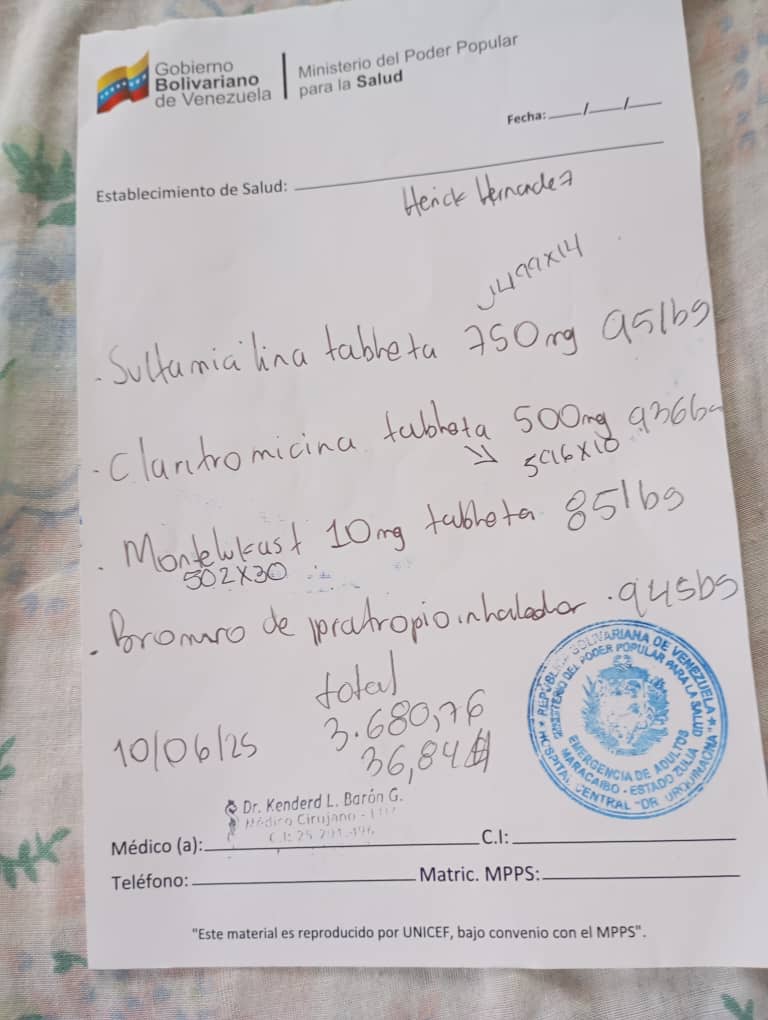 Gobierno
Bolivariano
de Venezuela
Ministerio del Poder Popular
para la Salud
Fecha: ____/____/____
Establecimiento de Salud:
Herick Hernandez
1499x14
. Sultamicilina tableta 750mg 951bs
. Claritromicina tableta 500mg 936bs
596x10
. Montelukast 10mg tableta 851bs
502x30
. Bromuro de ipratropio inhalador . 945bs
total
3.680,76
36,84$
10/06/25
REPÚBLICA BOLIVARIANA DE VENEZUELA
MINISTERIO DEL PODER POPULAR PARA LA SALUD
EMERGENCIA DE ADULTOS
MARACAIBO - ESTADO ZULIA
HOSPITAL CENTRAL "DR. URQUINAONA"
Dr. Kenderd L. Barón G.
Médico Cirujano -
Médico (a):
C.I:
Teléfono:
Matric. MPPS:
"Este material es reproducido por UNICEF, bajo convenio con el MPPS".